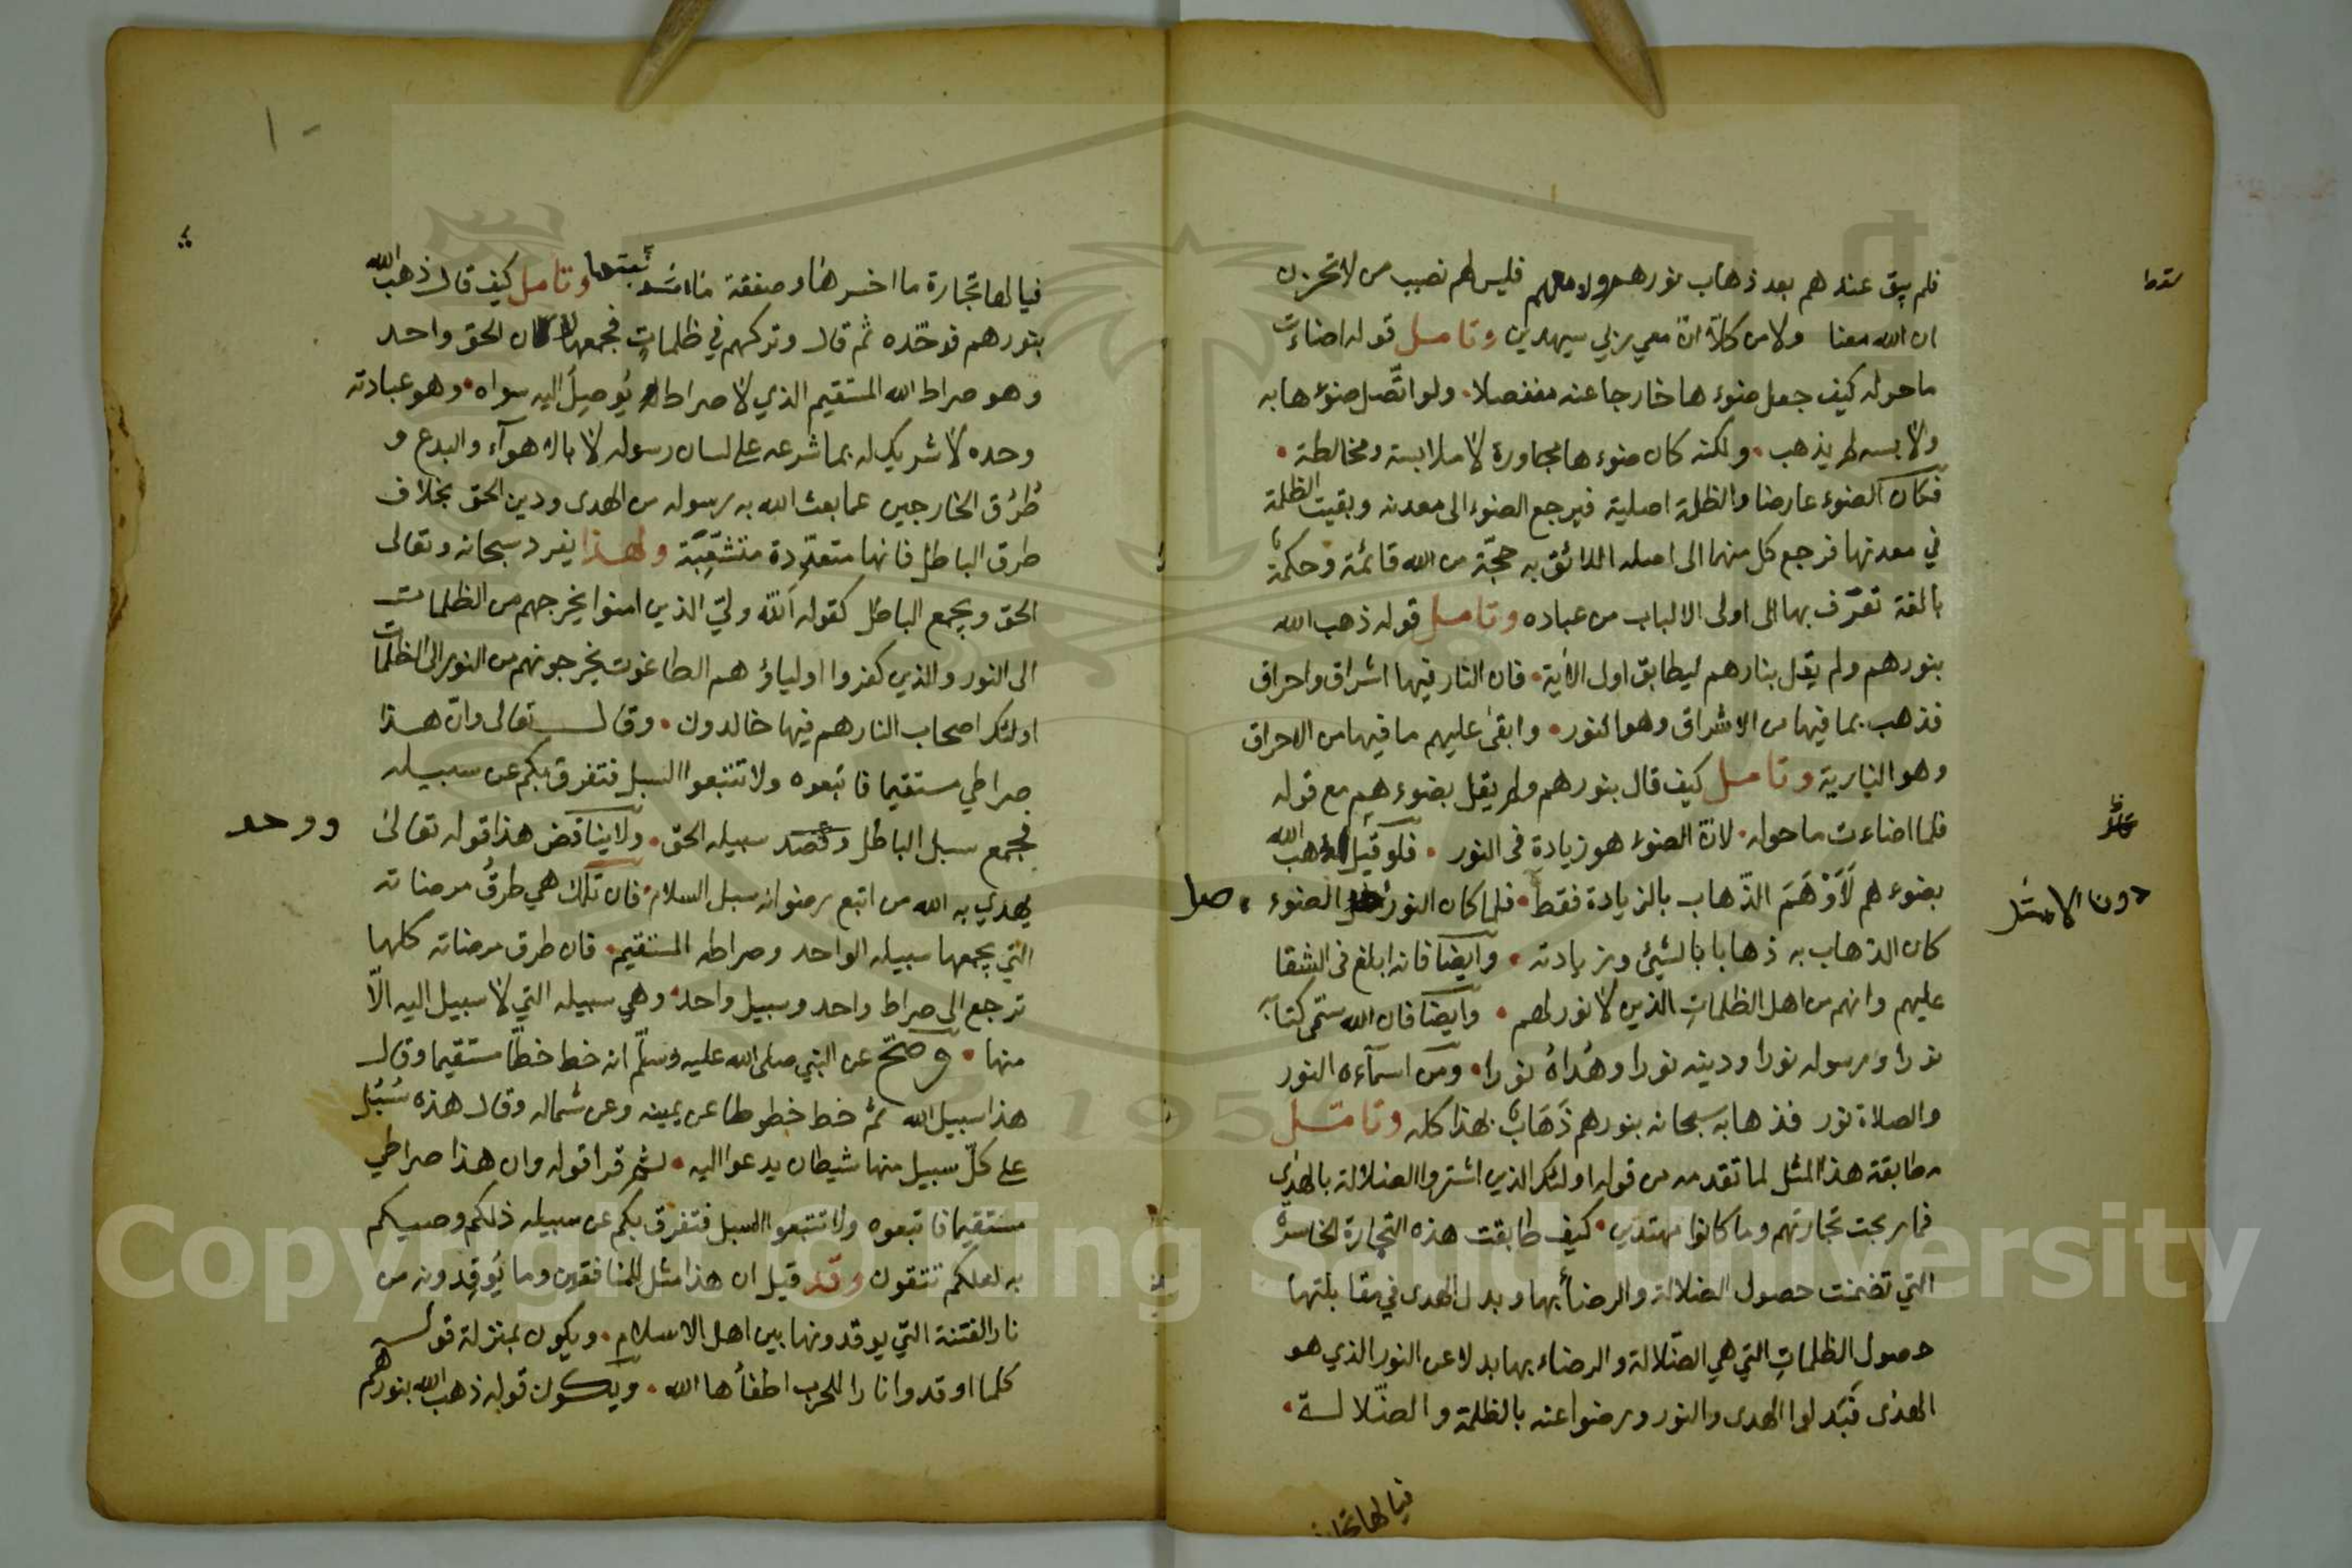 فلم يبق عندهم بعد ذهاب نورهم ولا معهم فليس لهم نصيب من لا تحزن
ان الله معنا ولا من كلّا انّ معي ربي سيهدين وتامل قوله اضاءت
ما حوله كيف جعل ضوءها خارجا عنه منفصلا. ولو اتّصل ضوءها به
ولابسه لم يذهب. ولكنه كان ضوءها مجاورة لا ملابسة ومخالطة.
فكان الضوء عارضا والظلمة اصلية فرجع الضوء الى معدنه وبقيت الظلمة
في معدنها فرجع كل منهما الى اصله اللائق به حجّة من الله قائمة وحكمة
بالغة تعرّف بها الى اولى الالباب من عباده وتامل قوله ذهب الله
بنورهم ولم يقل بنارهم ليطابق اول الآية. فان النار فيها اشراق واحراق
فذهب بما فيها من الاشراق وهو النور. وابقى عليهم ما فيها من الاحراق
وهو النارية وتامل كيف قال بنورهم ولم يقل بضوءهم مع قوله
فلما اضاءت ما حوله. لانّ الضوء هو زيادة فى النور. فلو قيل ذهب الله
بضوءهم لَاَوْهَمَ الذّهاب بالزيادة فقط. فلما كان النور اصل الضوء
كان الذهاب به ذهابا بالشيئ وزيادته. وايضا فانه ابلغ فى الشقا
عليهم وانهم من اهل الظلماتِ الذين لا نور لهم. وايضا فان الله سمّى كتابه
نورا ورسوله نورا ودينه نورا وهُداهُ نورا. ومن اسمآءه النور
والصلاة نور فذهابه سبحانه بنورهم ذَهَابٌ بهذا كله وتامّل
مطابقة هذا المثل لما تقدمه من قوله اولئك الذين اشتروا الضلالة بالهدى
فما ربحت تجارتهم وما كانوا مهتدين. كيف طابقت هذه التجارة الخاسرة
التي تضمنت حصول الضلالة والرضا بها وبدل الهدى في مقابلتها
حصول الظلماتِ التي هي الضّلالة والرضاء بها بدلا عن النور الذي هو
الهدى فَبدلوا الهدى والنور ورضوا عنه بالظلمة والضّلالة.
دون الامثل
فيالها تجارة
فيالها تجارة ما اخسرها وصفقة ما اشد غبنها وتامل كيف قال ذهب الله
بنورهم فوحّده ثم قال وتركهم في ظلماتٍ فجمعها لان الحق واحد
وهو صراط الله المستقيم الذي لا صراط يُوصِلُ اليه سواه. وهو عبادته
وحده لا شريك له بما شرعه على لسان رسوله لا بالاهوآء والبدع و
طُرُق الخارجين عما بعث الله به رسوله من الهدى ودين الحق بخلاف
طرق الباطل فانها متعدّدة متشعّبة ولهذا يفرد سبحانه وتعالى
الحق ويجمع الباطل كقوله اَللّه وليّ الذين امنوا يخرجهم من الظلمات
الى النور والذين كفروا اولياؤهم الطاغوت يخرجونهم من النور الى الظلمات
اولئك اصحاب النار هم فيها خالدون. وقال تعالى وانّ هذا
صراطي مستقيما فاتبعوه ولا تتبعوا السبل فتفرق بكم عن سبيله
فجمع سبل الباطل ووحد سبيله الحق. ولا يناقض هذا قوله تعالى
يهدي به الله من اتبع رضوانه سبل السلام. فان تلك هي طرقُ مرضاته
التي يجمعها سبيله الواحد وصراطه المستقيم. فان طرق مرضاته كلها
ترجع الى صراط واحد وسبيل واحد. وهي سبيله التي لا سبيل اليه الّا
منها. وصحّ عن النبي صلى الله عليه وسلّم انه خط خطّا مستقيما وقال
هذا سبيل الله ثم خط خطوطا عن يمينه وعن شماله وقال هذه سُبُل
على كلّ سبيل منها شيطان يدعوا اليه. ثم قرا قوله وان هذا صراطي
مستقيما فاتبعوه ولا تتبعوا السبل فتفرق بكم عن سبيله ذلكم وصيكم
به لعلكم تتقون وقد قيل ان هذا مثل للمنافقين وما يُوقِدونه من
نار الفتنة التي يوقدونها بين اهل الاسلام. ويكون بمنزلة قوله
كلما اوقدوا نارا للحرب اطفأها الله. ويكون قوله ذهب الله بنورهم
Copyright © King Saud University
1957